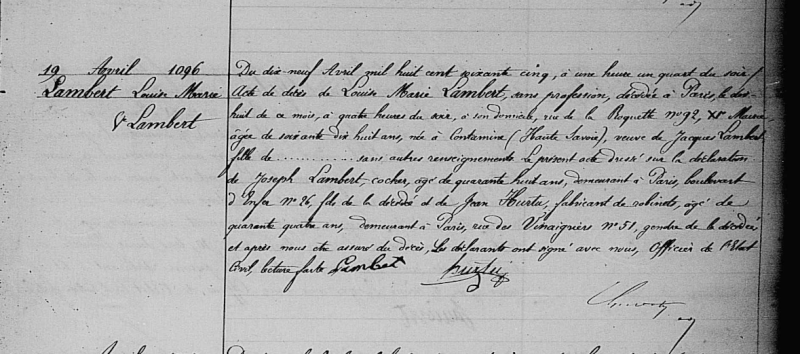 19 Avril 1096
Lambert Louise Marie
Ve Lambert
Du dix-neuf Avril mil huit cent soixante cinq, à une heure un quart du soir
Acte de décès de Louise Marie Lambert, sans profession, décédée à Paris, le dix
huit de ce mois, à quatre heures du soir, à son domicile, rue de la Roquette no 92, XIe Mairie
âgée de soixante dix huit ans, née à Contamine (Haute Savoie), veuve de Jacques Lambert
fille de ............ sans autres renseignements Le présent acte dressé sur la déclaration
de Joseph Lambert, cocher, âgé de quarante huit ans, demeurant à Paris, boulevart
d'Enfer no 26, fils de la décédée et de Jean Hurtu, fabricant de robinets, âgé de
quarante quatre ans, demeurant à Paris, rue des Vinaigriers no 51, gendre de la décédée
et après nous être assuré du décès, Les déclarants ont signé avec nous, Officier de l'Etat
Civil, lecture faite Lambert hurtu